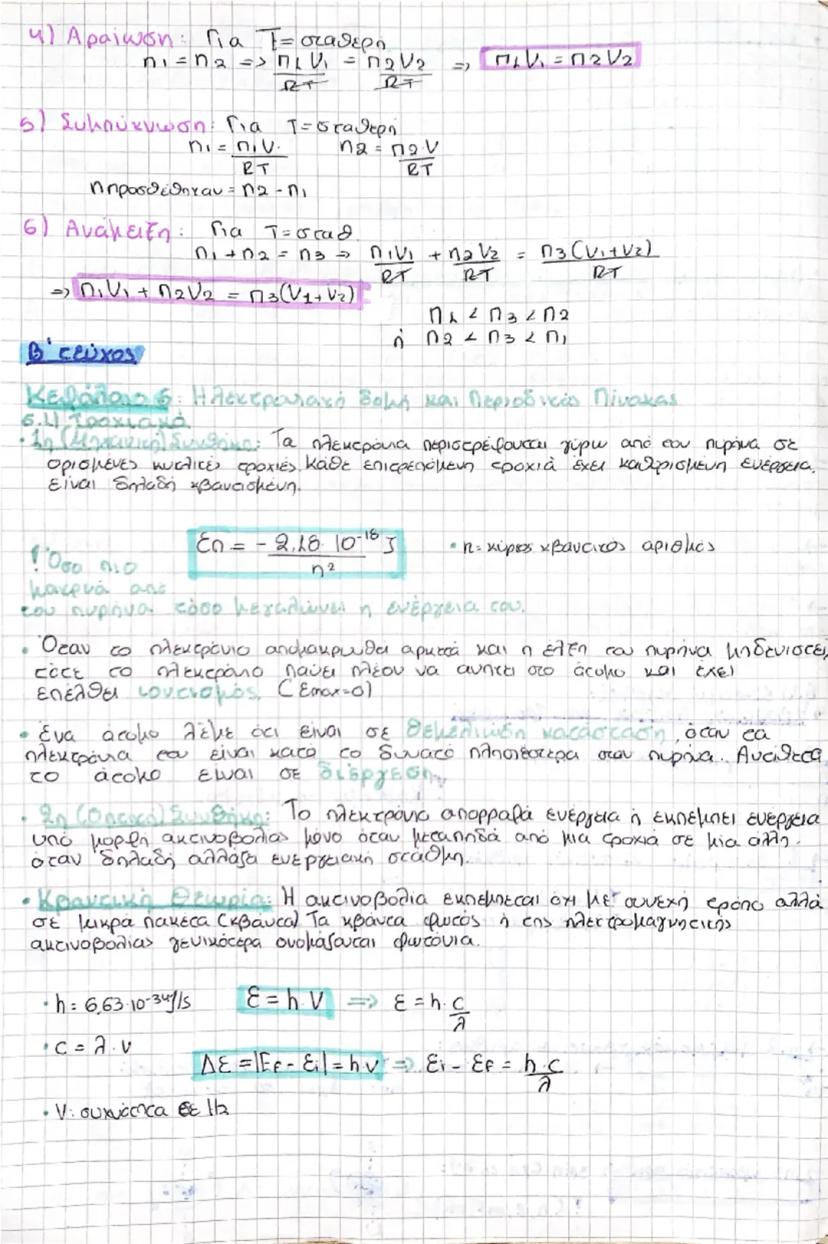 4) Αραίωση: Για Τ=σταθερη
n1 = n2 => Π1V1/RT = Π2V2/RT => Π1V1 = Π2V2
5) Συμπύκνωση: Για Τ=σταθερη
n1 = Π1V/RT n2 = Π2V/RT
nπροσθέθηκαν = n2 - n1
6) Ανάμειξη: Για Τ=σταθ.
n1 + n2 = n3 => Π1V1/RT + Π2V2/RT = Π3(V1+V2)/RT
=> Π1V1 + Π2V2 = Π3(V1+V2)
Π1 < Π3 < Π2
ή Π2 < Π3 < Π1
Β' τεύχος
Κεφάλαιο 6: Ηλεκτρονιακή δομή και Περιοδικός Πίνακας
6.1) Τροχιακά
• 1η (Μηχανική) Συνθήκη: Τα ηλεκτρόνια περιστρέφονται γύρω από τον πυρήνα σε
ορισμένες κυκλικές τροχιές. Κάθε επιτρεπόμενη τροχιά έχει καθορισμένη ενέργεια,
είναι δηλαδή κβαντισμένη.
En = - 2,18 10⁻¹⁸ J / n² • n: κύριος κβαντικός αριθμός
! Όσο πιο
μακρυά από
τον πυρήνα τόσο μεγαλώνει η ενέργεια του.
• Όταν το ηλεκτρόνιο απομακρυνθεί αρκετά και η έλξη του πυρήνα μηδενιστεί,
τότε το ηλεκτρόνιο παύει πλέον να ανήκει στο άτομο και έχει
επέλθει ιονισμός. (Emax=0)
• Ένα άτομο λέμε ότι είναι σε θεμελιώδη κατάσταση, όταν τα
ηλεκτρόνια του είναι κατά το δυνατό πλησιέστερα στον πυρήνα. Αντίθετα
το άτομο είναι σε διέργεση.
• 2η (Οπτική) Συνθήκη: Το ηλεκτρόνιο απορροφά ενέργεια ή εκπέμπει ενέργεια
υπό μορφή ακτινοβολίας μόνο όταν μεταπηδά από μια τροχιά σε μία άλλη.
όταν δηλαδή αλλάζει ενεργειακή στάθμη.
• Κβαντική Θεωρία: Η ακτινοβολία εκπέμπεται όχι με συνεχή τρόπο αλλά
σε μικρά πακέτα (κβάντα) Τα κβάντα φωτός ή της ηλεκτρομαγνητικής
ακτινοβολίας γενικότερα ονομάζονται φωτόνια.
• h = 6,63·10⁻³⁴ J/s E = h·V => E = h·c/λ
• c = λ·ν
ΔE = |Ef - Ei| = h·v => Ei - Ef = h·c/λ
• V: συχνότητα σε Hz